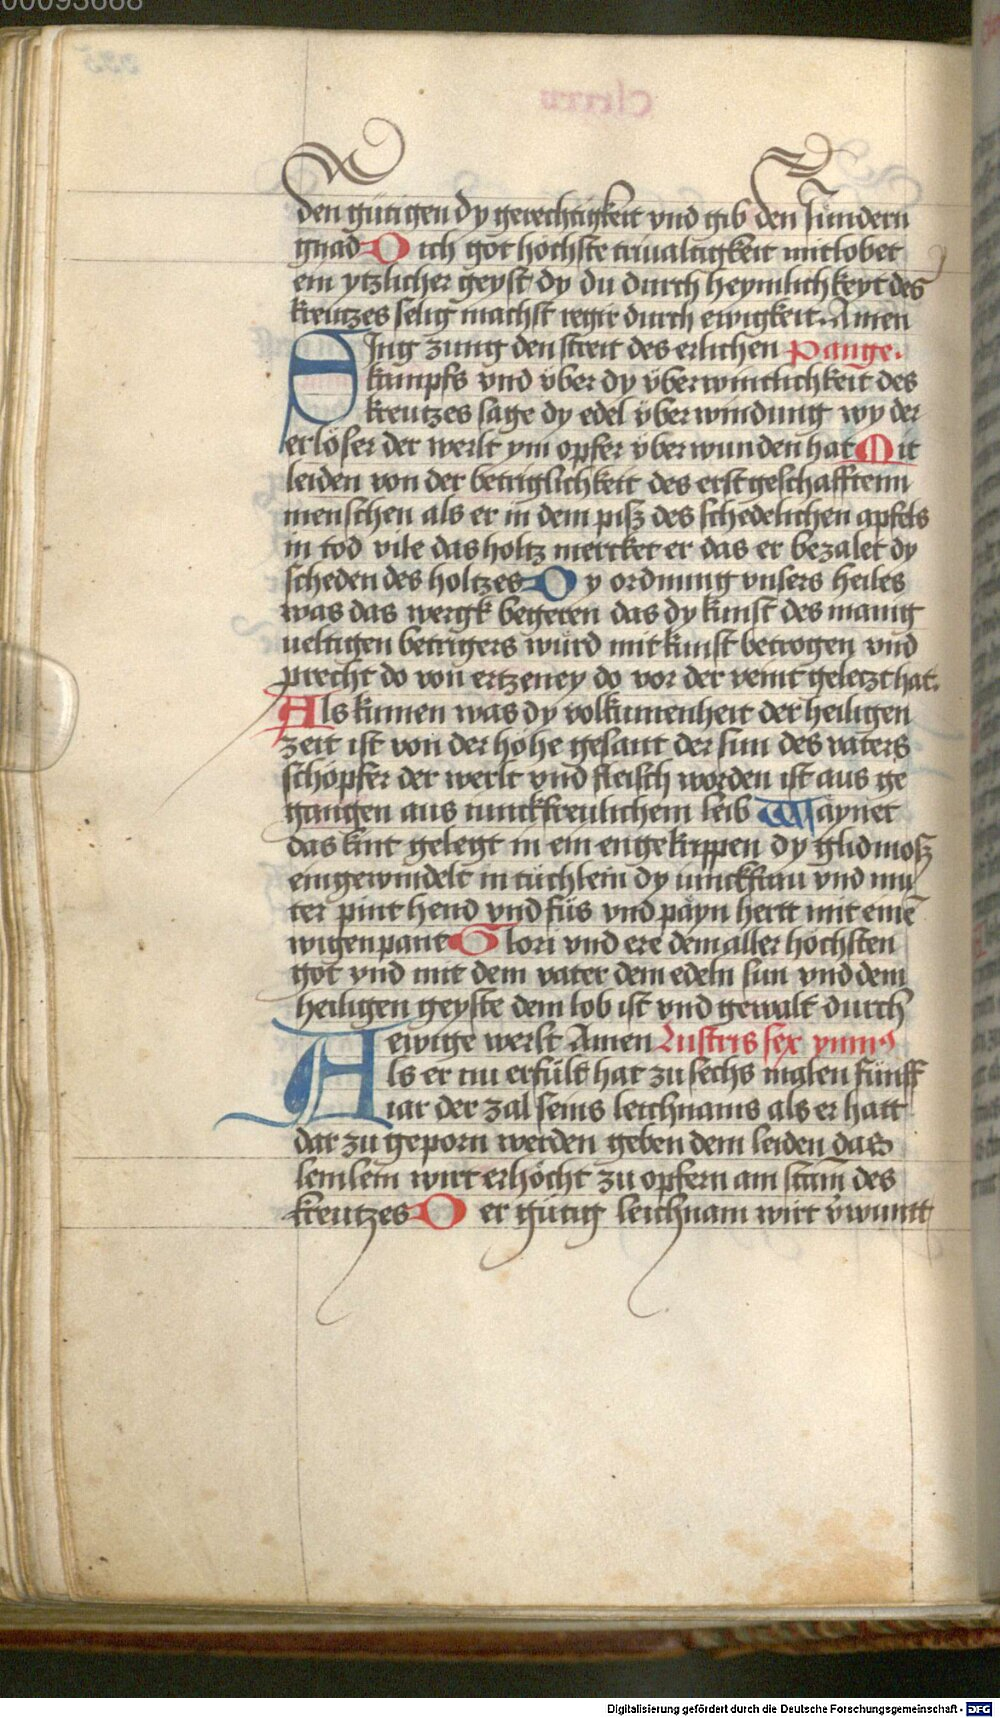 00093668
den gütigen dy gerechtigkeit vnd gib den sündern
gnad Dich got hochste triualtigkeit mitlobet
ein ytzlicher geyst dy du durch heymlichkeyt des
kreutzes selig machst regir durch ewigkeit. Amen
SIng zung den streit des erlichen Pange.
kampfs vnd vber dy vberwintlichkeit des
kreutzes sage dy edel vberwindung wy der
erlöser der werlt ym opfer vberwunden hat Mit
leiden von der betriglichkeit des erstgeschafftenn
menschen als er in dem piß des schedelichen apfels
in tod vile das holtz mercket er das er bezalet dy
scheden des holtzes Dy ordnung vnsers heiles
was das wergk begeren das dy kunst des manig
ueltigen betrigers würd mit kunst betrogen vnd
precht do von ertzeney do vor der veint geletzt hat.
Als kumen was dy volkumenheit der heiligen
zeit ist von der höhe gesant der sun des vaters
schöpfer der werlt vnd fleisch worden ist aus ge
gangen aus iunckfreulichem leib Waynet
das kint gelegt in ein enge krippen dy glidmoß
eingewindelt in tüchlein dy iunckfrau vnd mu
ter pint hend vnd füs vnd payn hertt mit eine
wigenpant Glori vnd ere dem aller höchsten
got vnd mit dem vater dem edeln sun vnd dem
heiligen geyste dem lob ist vnd gewalt durch
ewige werlt Amen Lustris sex ymnus
Als er nu erfült hat zu sechs malen fünff
iar der zal seins leichnams als er hatt
dar zu geporn werden geben dem leiden das
lemlein wirt erhöcht zu opfern am stam des
kreutzes Der gütig leichnam wirt vwuntt
Digitalisierung gefördert durch die Deutsche Forschungsgemeinschaft - DFG